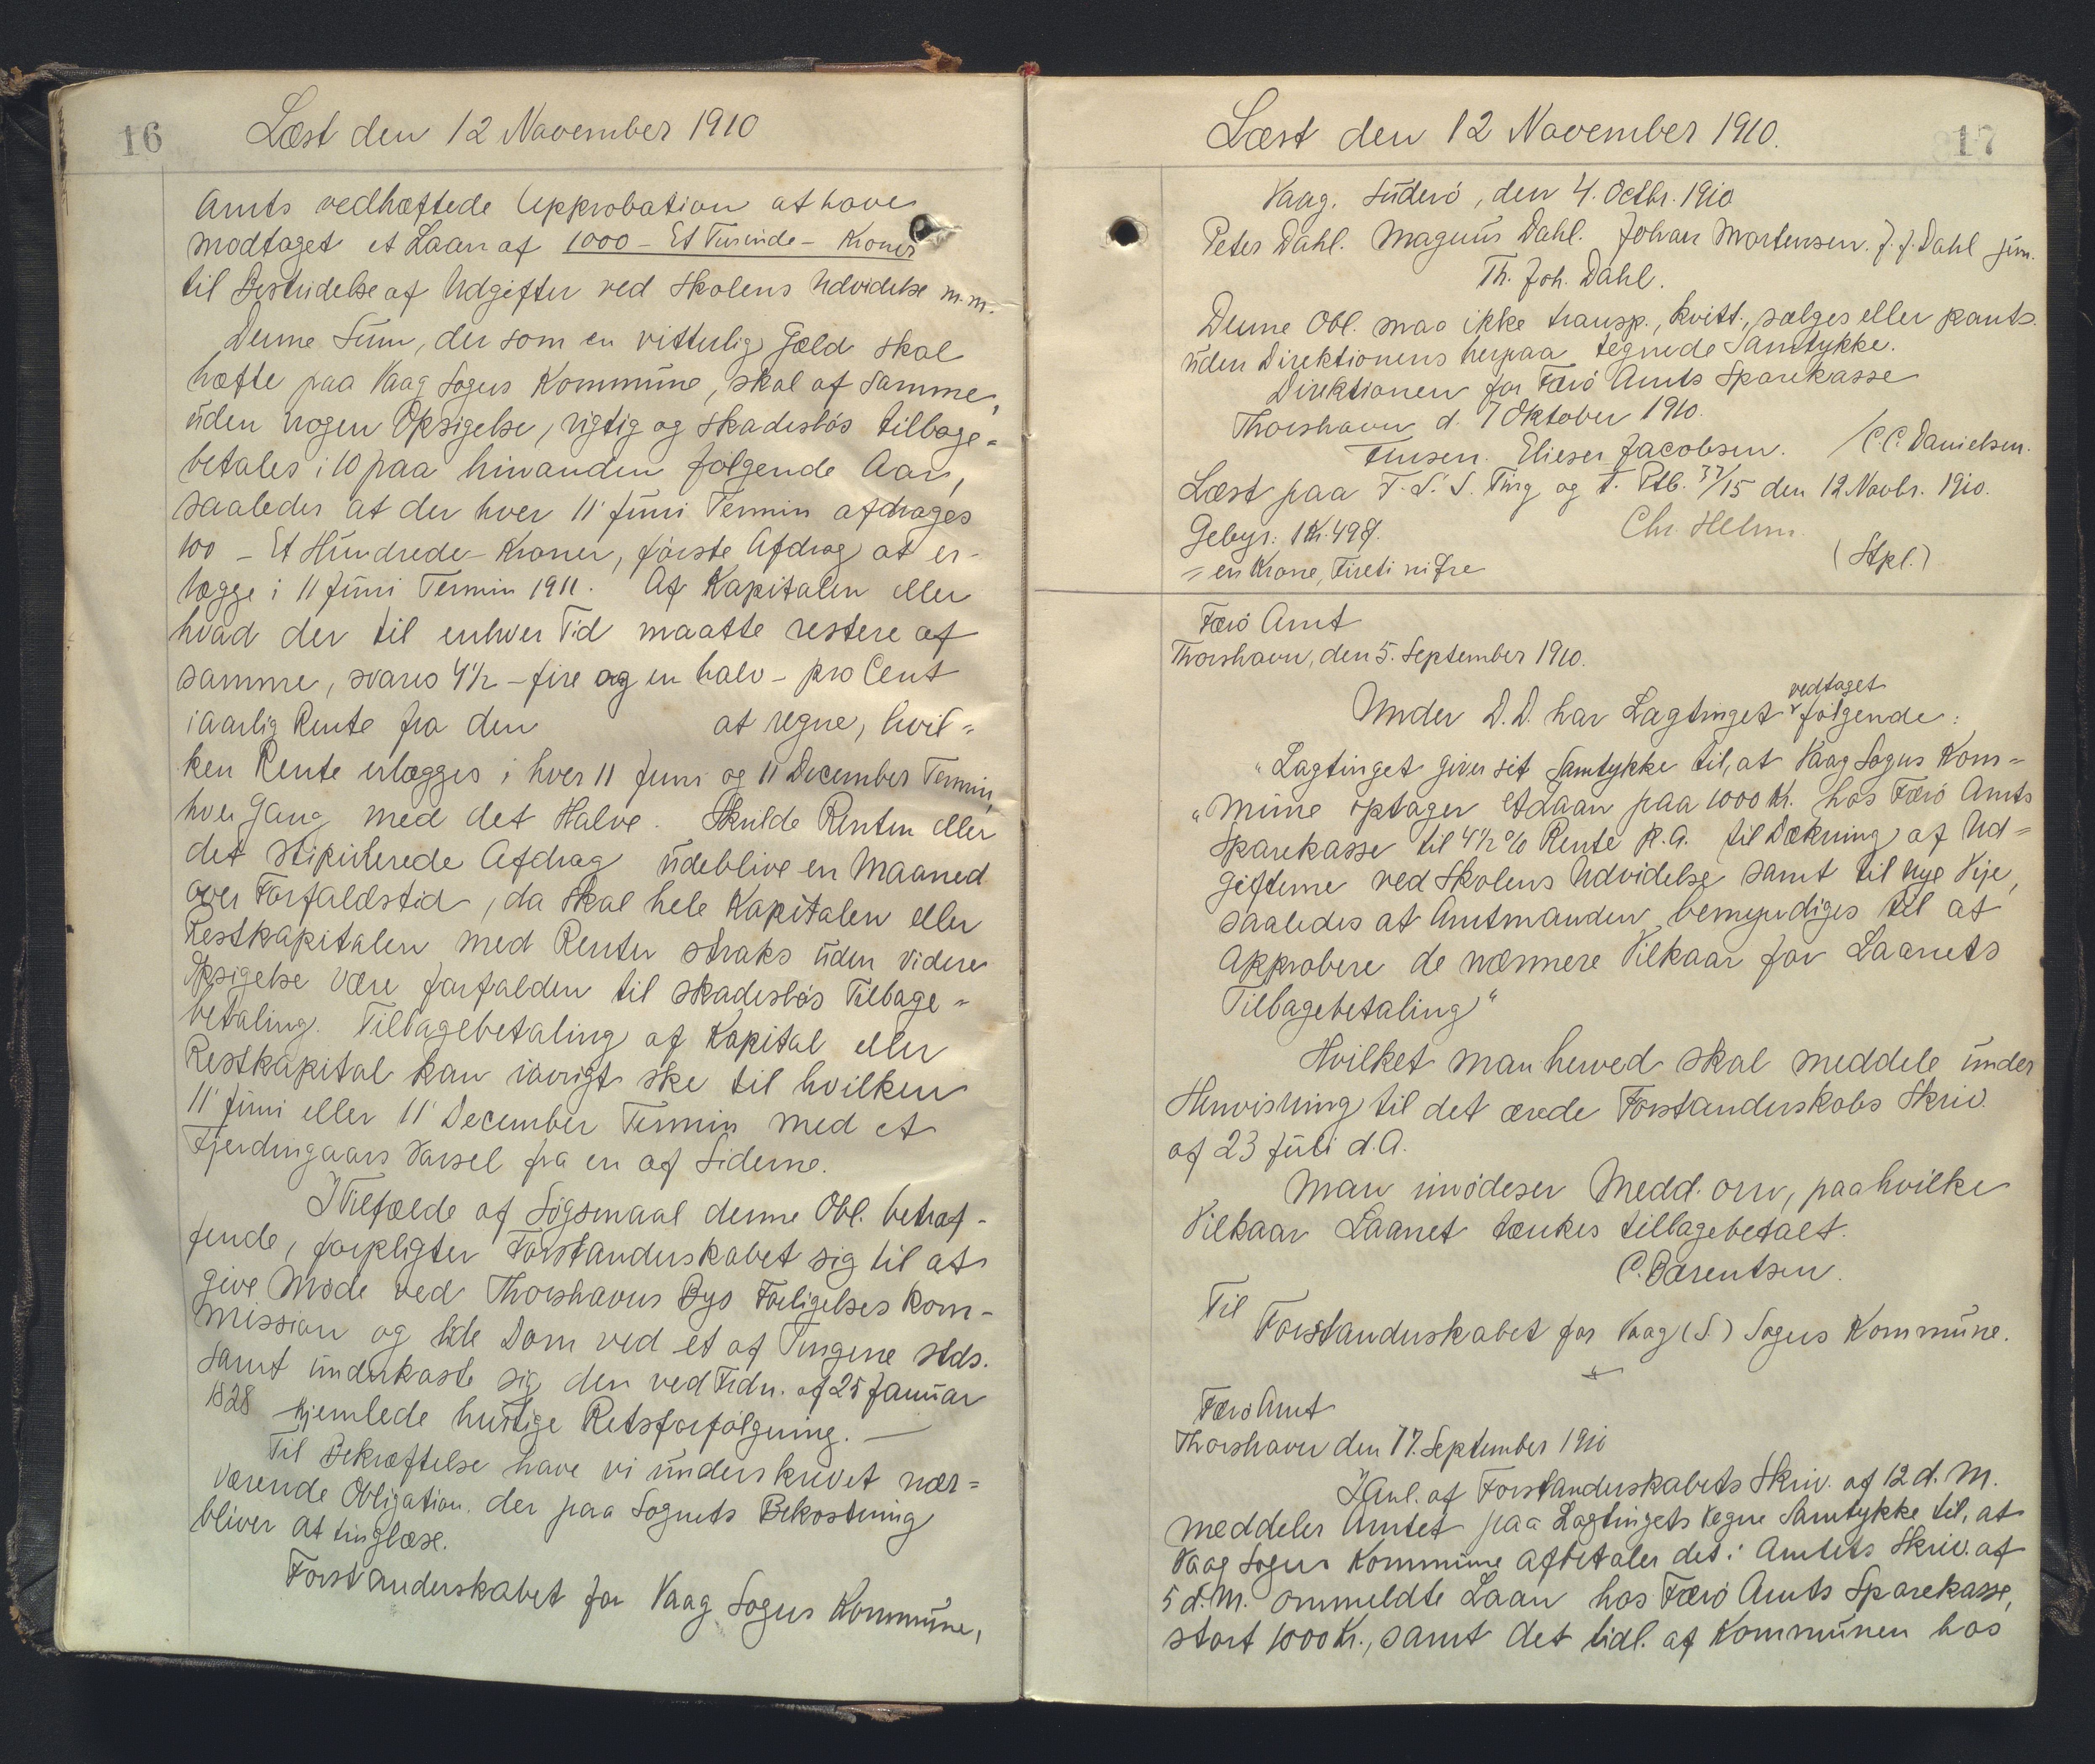 16
Læst den 12 November 1910
Amts vedhæftede Approbation at have
modtaget et Laan af 1000 - Et Tusinde - Kroner
til Bestridelse af Udgifter ved Skolens Udvidelse m.m.
Denne Sum, der som en vitterlig Gæld skal
hæfte paa Vaag Sogns Kommune, skal af samme,
uden nogen Opsigelse, rigtig og skadesløs tilbage=
betales i 10 paa hinanden følgende Aar,
saaledes at der hver 11' Juni Termin afdrages
100 - Et Hundrede - Kroner, første Afdrag at er-
lægge i 11 Juni Termin 1911. Af Kapitalen eller
hvad der til enhver Tid maatte restere af
samme, svares 4½ - fire og en halv - pro Cent
i aarlig Rente fra den at regne, hvil=
ken Rente erlægges i hver 11 Juni og 11 December Termin,
hver Gang med det Halve. Skulde Renten eller
det stipulerede Afdrag udeblive en Maaned
over Forfaldstid, da skal hele Kapitalen eller
Restkapitalen med Renter straks uden videre
Opsigelse være forfalden til skadesløs Tilbage=
betaling. Tilbagebetaling af Kapital eller
Restkapital kan iøvrigt ske til hvilken
11' Juni eller 11' December Termin med et
Fjerdingaars Varsel fra en af Siderne.
I Tilfælde af Søgsmaal denne Obl. betræf-
fende, forpligter Forstanderskabet sig til at
give Møde ved Thorshavns Bys Forligelses Kom-
mission og lide Dom ved et af Tingene stds.
samt underkaste sig den ved Frdn. af 25 Januar
1828 hjemlede hurtige Retsforfølgning. —
Til Bekræftelse have vi underskrevet nær=
værende Obligation, der paa Sognets Bekostning
bliver at tinglæse.
Forstanderskabet for Vaag Sogns Kommune,
Læst den 12 November 1910.
17
Vaag, Suderö, den 4. Octbr. 1910
Peter Dahl. Magnus Dahl. Johan Mortensen. J. J. Dahl jun.
Th. Joh. Dahl.
Denne Obl. maa ikke transp., kvitt., sælges eller pants.
uden Direktionens herpaa tegnede Samtykke.
Direktionen for Færö Amts Sparekasse
Thorshavn d. 7 Oktober 1910.
Finsen. Elieser Jacobsen. /C.C. Danielsen.
Læst paa T. S. S. Ting og T. Ptb. 37/15 den 12 Novbr. 1910.
Gebyr: 1 Kr. 49 Ø. Chr. Helm.
= en Krone, Firetini Øre (Stpl.)
Færö Amt
Thorshavn, den 5. September 1910.
vedtaget
Under D.D. har Lagtinget følgende:
"Lagtinget giver sit Samtykke til, at Vaag Sogns Kom=
"mune optager et Laan paa 1000 Kr. hos Færö Amts
Sparekasse til 4½ % Rente p.A. til Dækning af Ud=
gifterne ved Skolens Udvidelse samt til nye Veje,
saaledes at Amtmanden bemyndiges til at
approbere de nærmere Vilkaar for Laanets
Tilbagebetaling"
Hvilket man herved skal meddele under
Henvisning til det ærede Forstanderskabs Skriv.
af 23 Juli d.A.
Man imødeser Medd. om, paa hvilke
Vilkaar Laanet tænkes tilbagebetalt.
C. Bærentsen.
Til
Forstanderskabet for Vaag (S.) Sogns Kommune.
Færö Amt
Thorshavn den 17. September 1910
I Anl. af Forstanderskabets Skriv. af 12 d. M.
meddeler Amtet paa Lagtingets Vegne Samtykke til, at
Vaag Sogns Kommune afbetaler det i Amtets Skriv. af
5 d. M. ommeldte Laan hos Færö Amts Sparekasse,
stort 1000 Kr., samt det tidl. af Kommunen hos